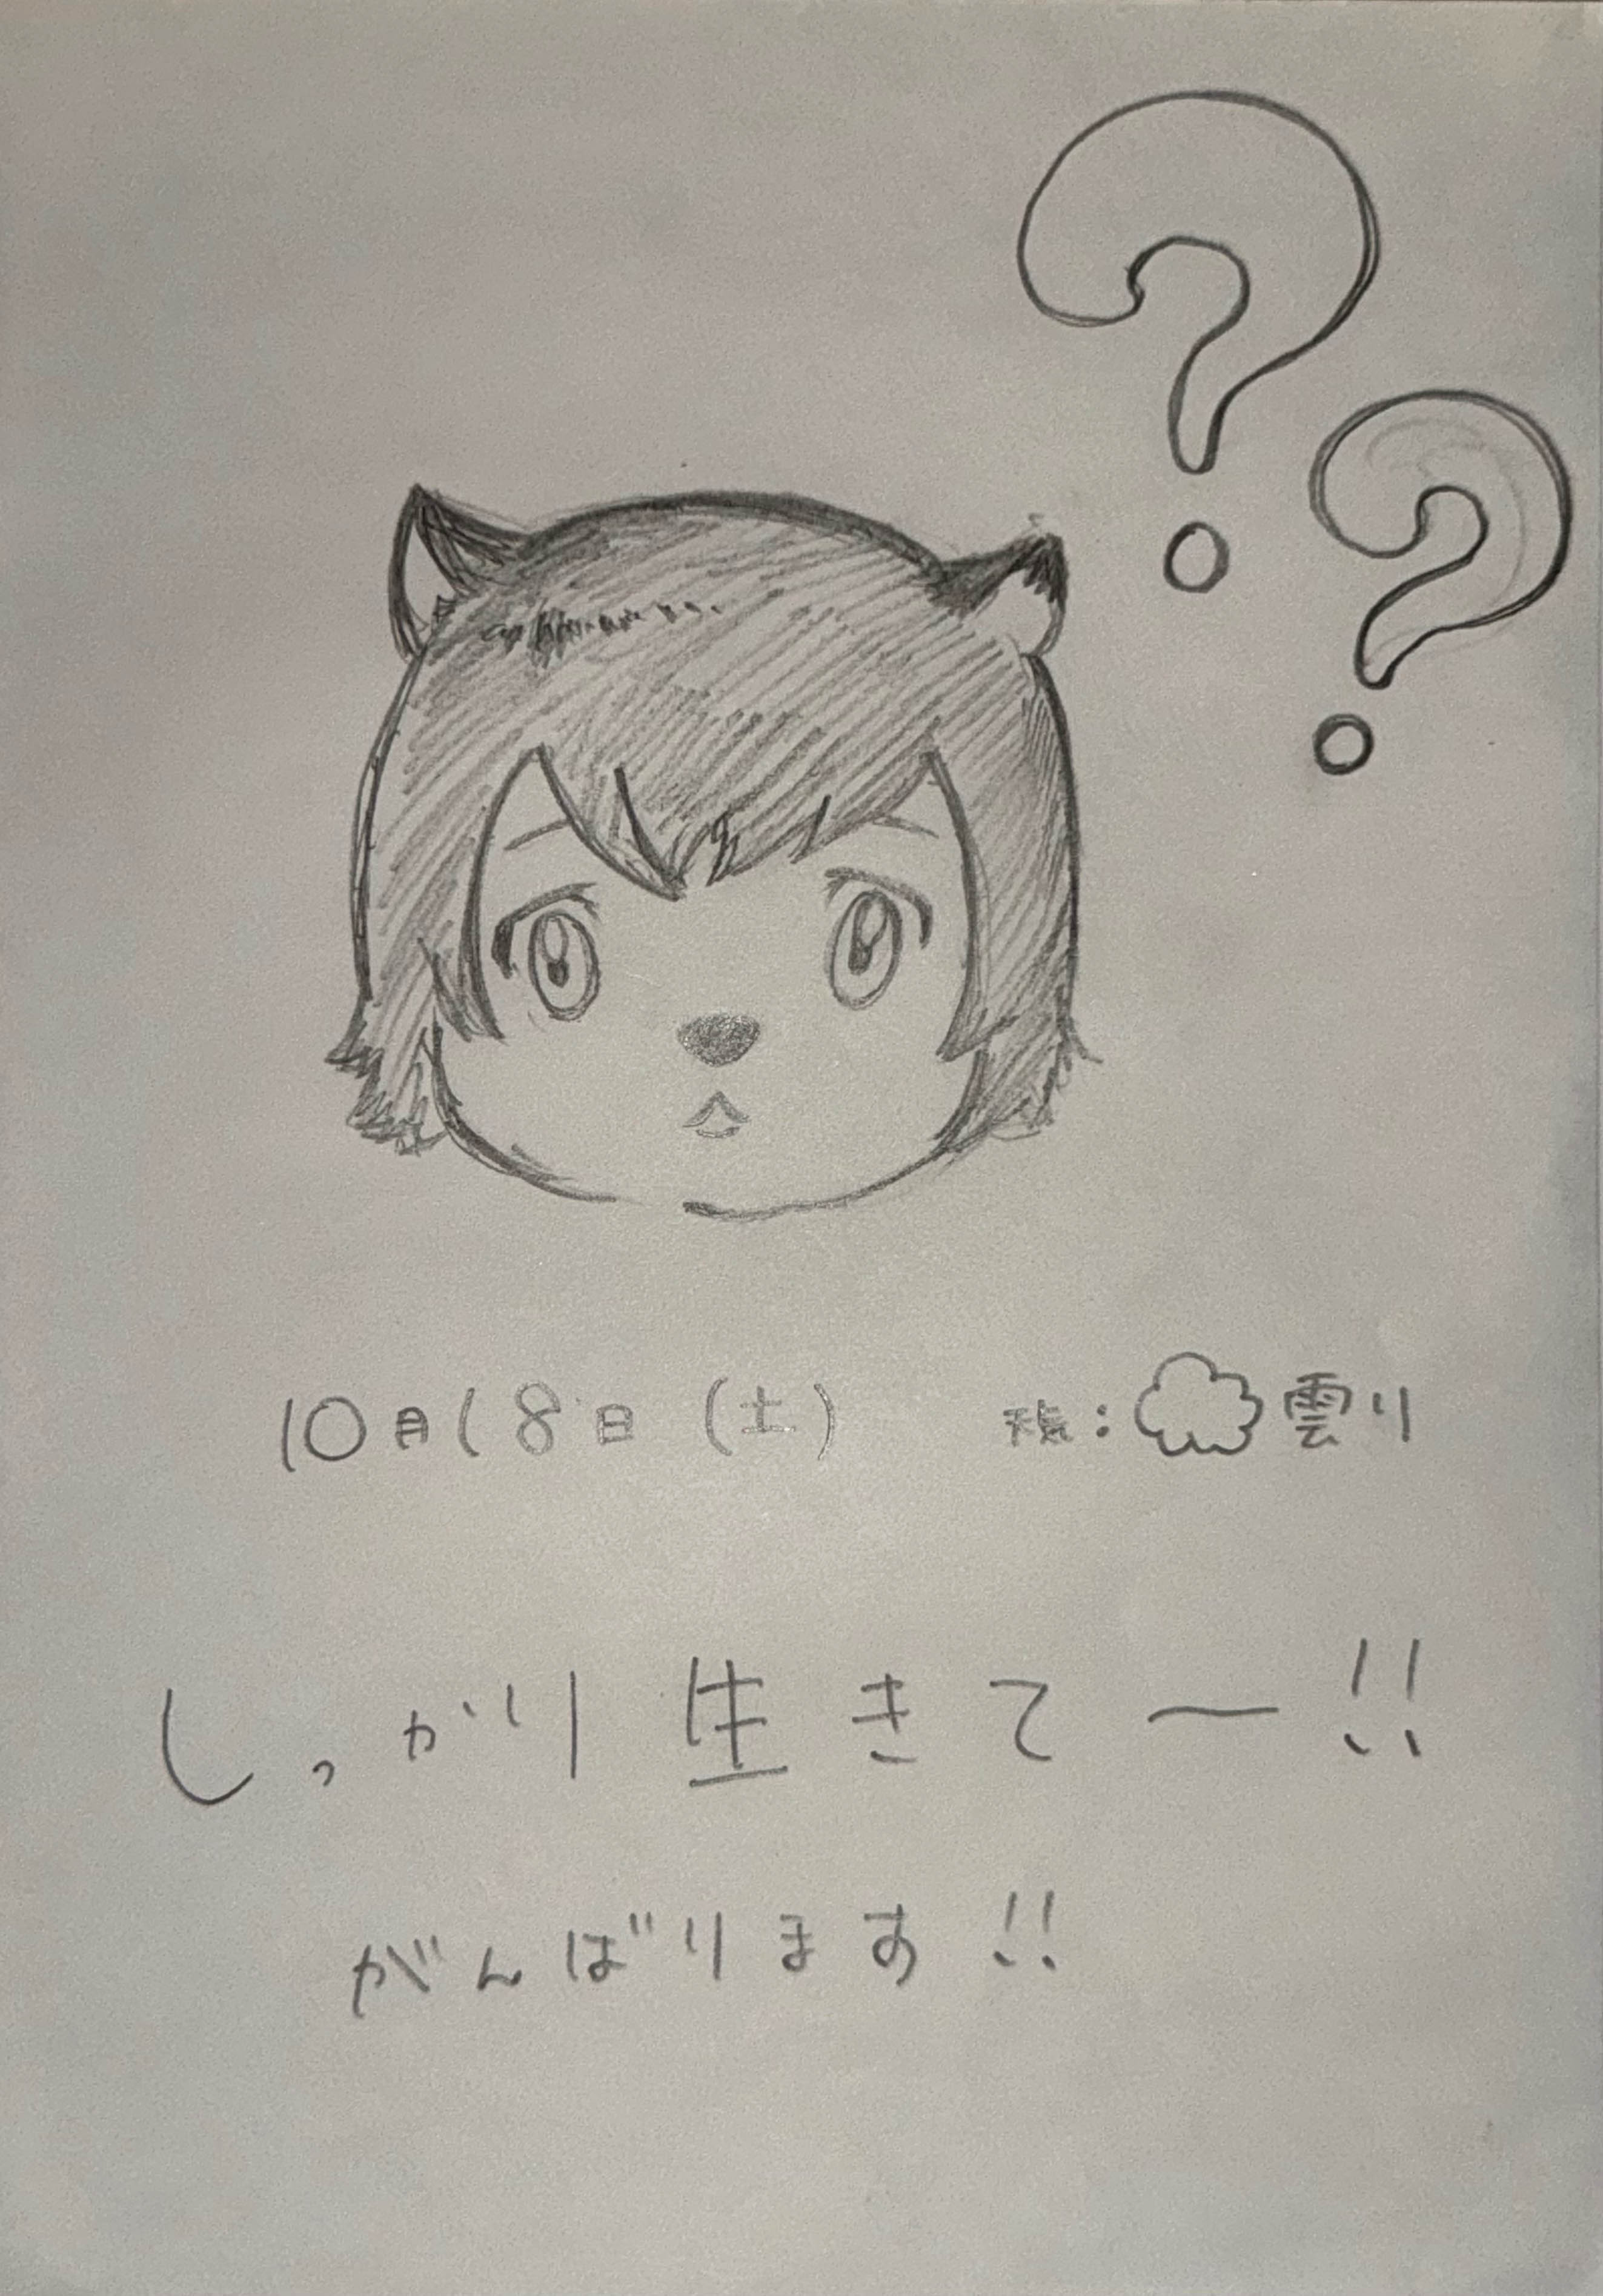 ??
10月18日(土) 天気:雲り
しっかり生きてー!!
がんばります!!